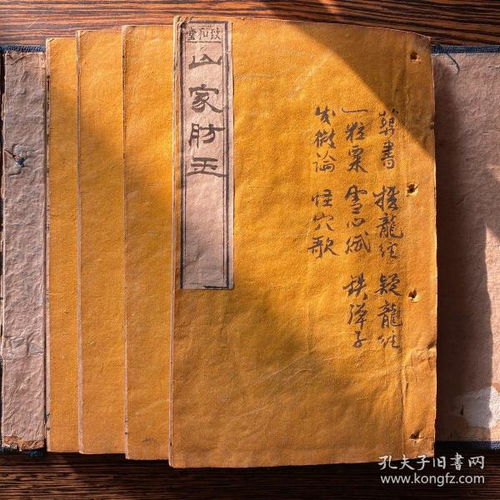 致和堂
山家肪玉
葬書 撼龍經 疑龍經
一粒粟 雪心賦 鉄彈子
發微論 怪穴歌
孔夫子旧书网
www.kongfz.com